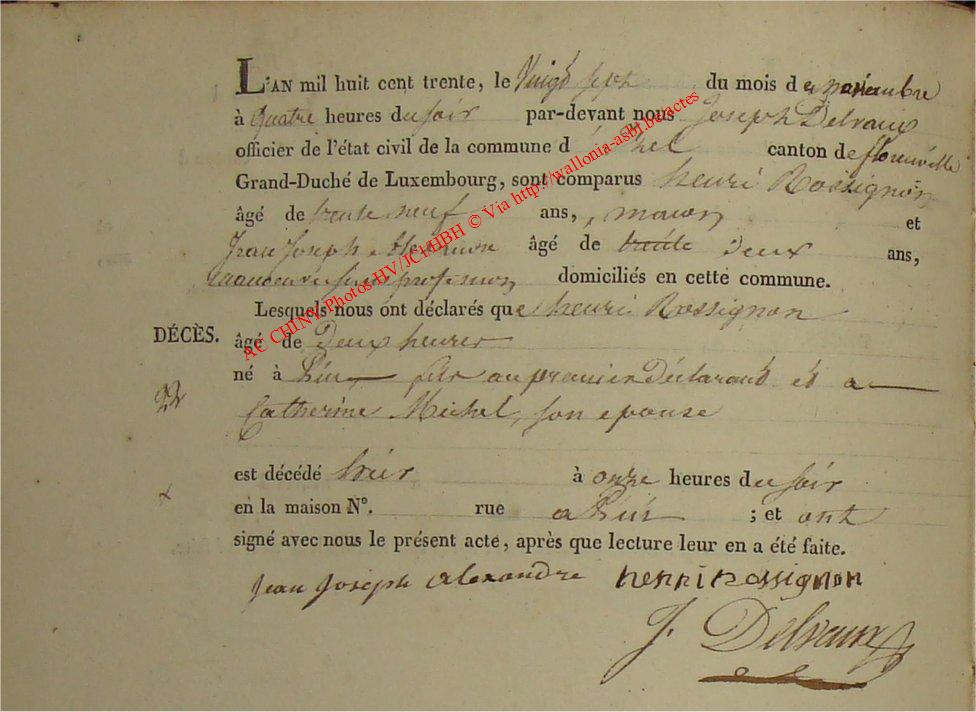 L'AN mil huit cent trente, le Vingt sept du mois de novembre
à Quatre heures du soir par-devant nous Joseph Delvaux
officier de l'état civil de la commune d canton de florenville
Grand-Duché de Luxembourg, sont comparus henri Rossignon
âgé de trente neuf ans, macon et
Jean Joseph Alexandre âgé de trente deux ans,
profession domiciliés en cette commune.
Lesquels nous ont déclarés que henri Rossignon
DÉCÈS. âgé de Deux heures
né à fils au premier Déclarant et a
Catherine Michel, son epouse
est décédé hier à onze heures du soir
en la maison N°. rue a ; et ont
signé avec nous le présent acte, après que lecture leur en a été faite.
Jean Joseph alexandre henri rossignon
J. Delvaux
AC CHINY Photos HV/JCM/HBH © Via http://wallonia-asbl.be/actes